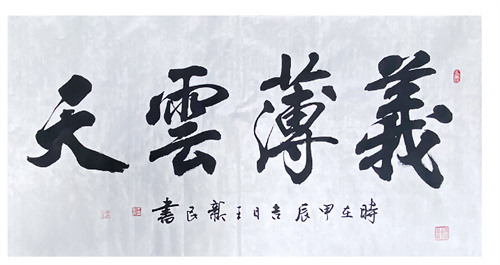 義薄雲天
時在甲辰吉日王龔民書